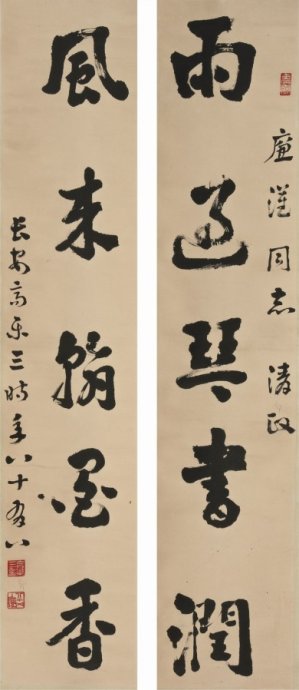 廉同志清政
雨過琴書潤
風來翰墨香
長安高樂三時年八十有八